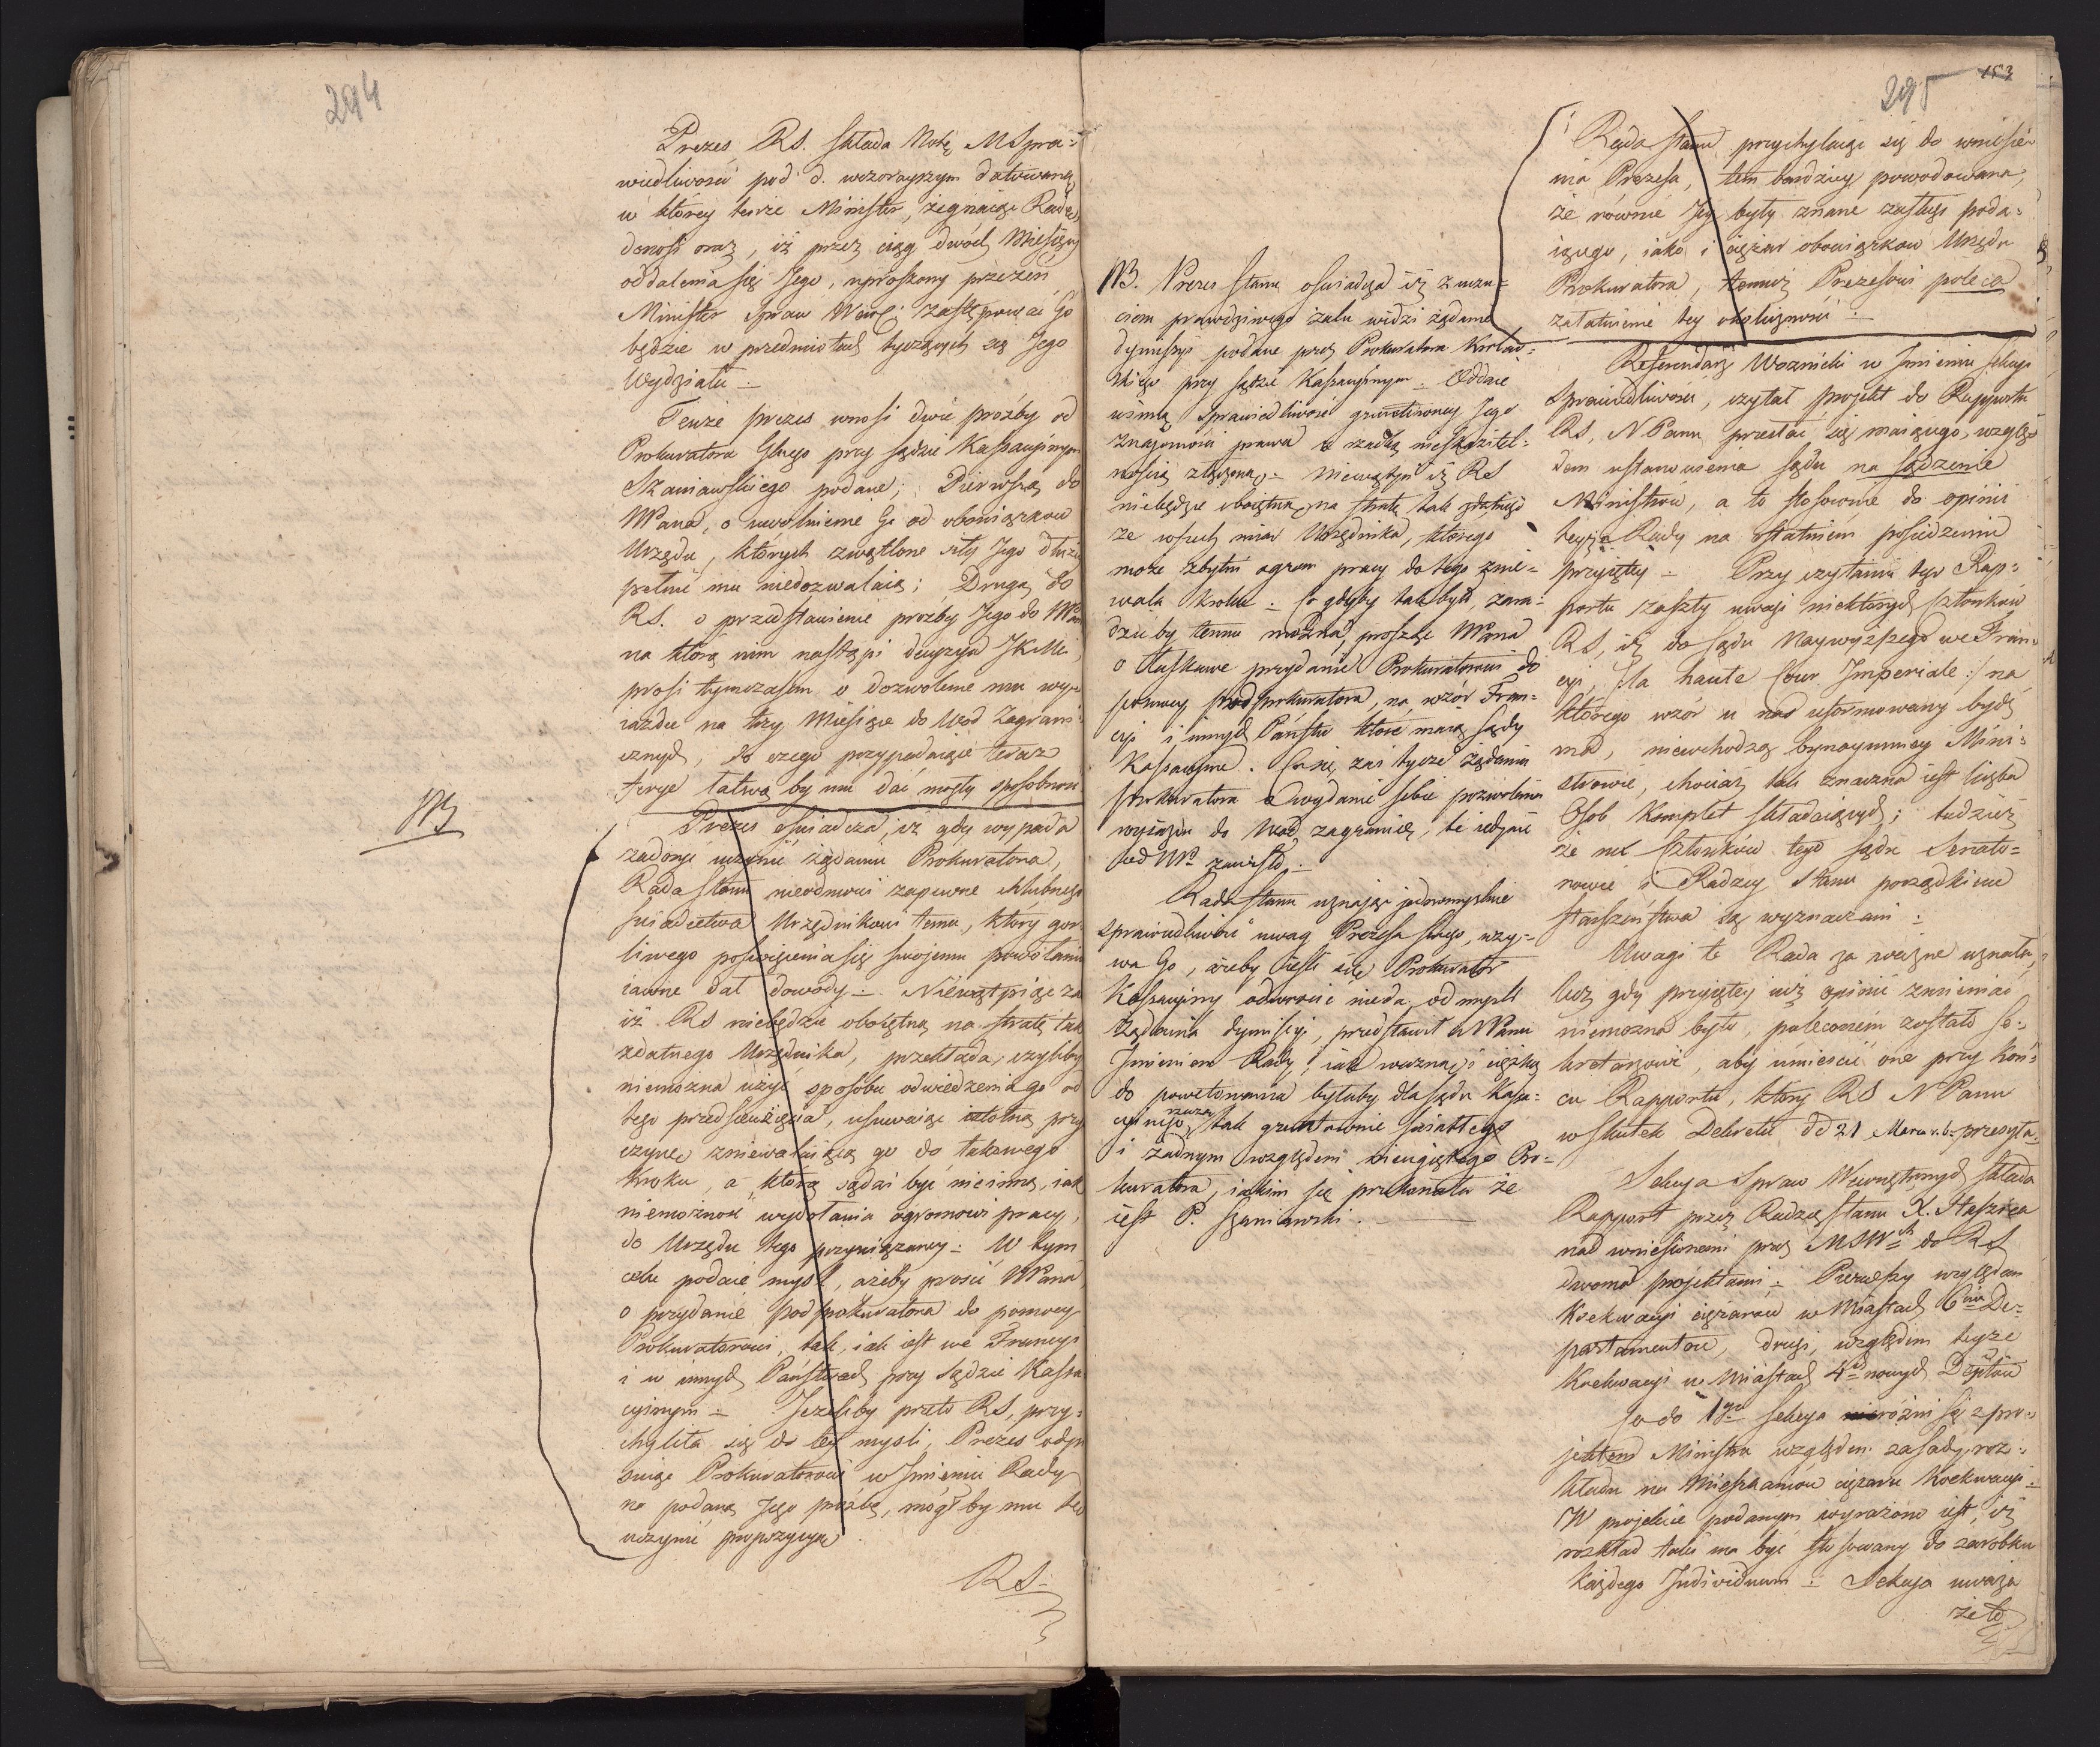 294
Prezes RS. składa Notę MSpra-
wiedliwości pod d. wczorayszym datowaną,
w którey tenże Minister, żegnaiąc Radę,
donosi oraz, iż przez ciąg dwóch Miesięcy
oddalenia się Jego, uproszony przezeń
Minister Spraw Wewn: zastępować Go
będzie w przedmiotach tyczących się Jego
Wydziału.
Tenże prezes wnosi dwie prośby od
Prokuratora Głnego przy Sądzie Kassacyjnym
Szaniawskiego podane; Pierwszą do
NPana, o uwolnienie Go od obowiązków
Urzędu, których zwątlone siły Jego dłużej
pełnić mu niedozwalaią; Drugą do
RS. o przedstawienie prozby Jego do NPana
na którą nim nastąpi decyzya JKMci,
prosi tymczasem o dozwolenie mu wy-
iazdu na trzy Miesiące do Wód Zagrani-
cznych, do czego przypadaiące teraz
feryе łatwą by mu dać mogły sposobność
NB
Prezes oświadcza, iż gdy wypada
zadosyć uczynić żądaniu Prokuratora,
Rada Stanu nieodmówi zapewne chlubnego
świadectwa Urzędnikowi temu, który gor-
liwego poświęcenia się swojemu powołaniu
iawne dał dowody. Niewątpiąc za
iż RS niebędzie oboiętną na stratę tak
zdatnego Urzędnika, przekłada, czyliby
niemożna użyć sposobu odwiedzenia go od
tego przedsięwzięcia, usuwaiąc istotną przy
czynę zniewalaiącą go do takowego
kroku, a którą sądzi być nieinną, iak
niemożność wydołania ogromowi pracy,
do Urzędu tego przywiązaney. W tym
celu podaie myśl, ażeby prosić NPana
o przydanie podprokuratora do pomocy
Prokuratorowi, tak, iak iest we Francyi
i w innych Państwach przy Sądzie Kassa
cyinym. Jeżeliby przeto RS, przy-
chyliła się do tey myśli, Prezes odpi
suiąc Prokuratorowi w Imieniu Rady
na podaną Jego prośbę, mógłby mu tę
uczynić propozycyą.
RS.
NB. Prezes Stanu oświadcza iż z uczu-
ciem prawdziwego żalu widzi żądanie
dymissyi podane przez Prokuratora Królew-
skiego przy Sądzie Kassacyinym. Oddaie
winną sprawiedliwość gruntowney Jego
znajomości prawa z rzadką nieskazitel-
nością złączoną. Niewątpi iż RS
niebędzie oboiętna na stratę tak zdatnego
ze wszech miar Urzędnika, którego
może zbytni ogrom pracy do tego znie-
wala kroku. Co gdyby tak było, zara-
dzić by temu można, prosząc NPana
o łaskawe przydanie Prokuratorowi do
pomocy podprokuratora, na wzór Fran-
cyi i innych Państw które maią Sądy
Kassacyine. Co się zaś tycze żądania
prokuratora o wydanie sobie pozwolenia
wyiazdu do Wód zagranicę, te iedynie
od NPa zawisło.
Rada Stanu uznając jednomyślnie
sprawiedliwość uwag Prezesa swego, wzy-
wa Go, ażeby ieśli się Prokurator
Kassacyiny odwrócić nieda od myśli
żądania dymisyi, przedstawił NPanu
Imieniem Rady, iak ważną i ciężką
do powetowania byłaby dla Sądu Kassa-
cyinego strata tak gruntownie światłego
i żadnym względem nieugiętego Pro-
kuratora, iakim się przekonała że
iest P. Szaniawski.
295
153
Rada Stanu przychylaiąc się do wniesie-
nia Prezesa, tem bardziey powodowana,
że równie Jey były znane zasługi poda-
iącego, iako i ciężar obowiązków Urzędu
Prokuratora, temuż Prezesowi poleca
załatwienie tey okoliczności.
Referendarz Woznicki w Imieniu Sekcyi
Sprawiedliwości, czytał projekt do Rapportu
RS, NPanu przesłać się maiącego, wzglę-
dem ustanowienia Sądu na sądzenie
Ministrów, a to stosownie do opinii
teyże Rady na ostatniem posiedzeniu
przyiętey. Przy czytaniu tego Rap-
portu zaszły uwagi niektórych Członków
RS, iż do Sądu Naywyższego we Fran-
cyi, /:la haute Cour Imperiale:/ na
którego wzór u nas uformowany bydź
ma, niewchodzą bynaymniey Mini-
strowie, chociaż tak znaczna iest liczba
Osób komplet składaiących; tudzież
że na Członków tego Sądu Senato-
rowie i Radzcy Stanu porządkiem
starszeństwa są wyznaczani.
Uwagi te Rada za ważne uznała,
lecz gdy przyiętey iuż opinii zmieniać
niemożna było, poleconém zostało Se-
kretarzowi, aby umieścić one przy koń-
cu Rapportu, który RS NPanu
w skutek Dekretu dd 21 Marca r.b. przesyła.
Sekcya Spraw Wewnętrznych składa
Rapport przez Radzcę Stanu X. Staszica
nad wniesionemi przez MSWch do RS
dwoma projektami. Pierwszy względem
Koekwacyi ciężarów w Miastach 6ciu De-
partamentów, drugi, względem teyże
Koekwacyi w Miastach 4ch nowych Dptów
Co do 1go Sekcya różni się z pro-
jektem Ministra względem zasady roz-
kładu na Mieszkańców ciężaru Koekwacyi.
W projekcie podanym wyrażono iest, iż
rozkład taki ma być stosowany do zarobku
każdego Individuum. Sekcya uważa
że to